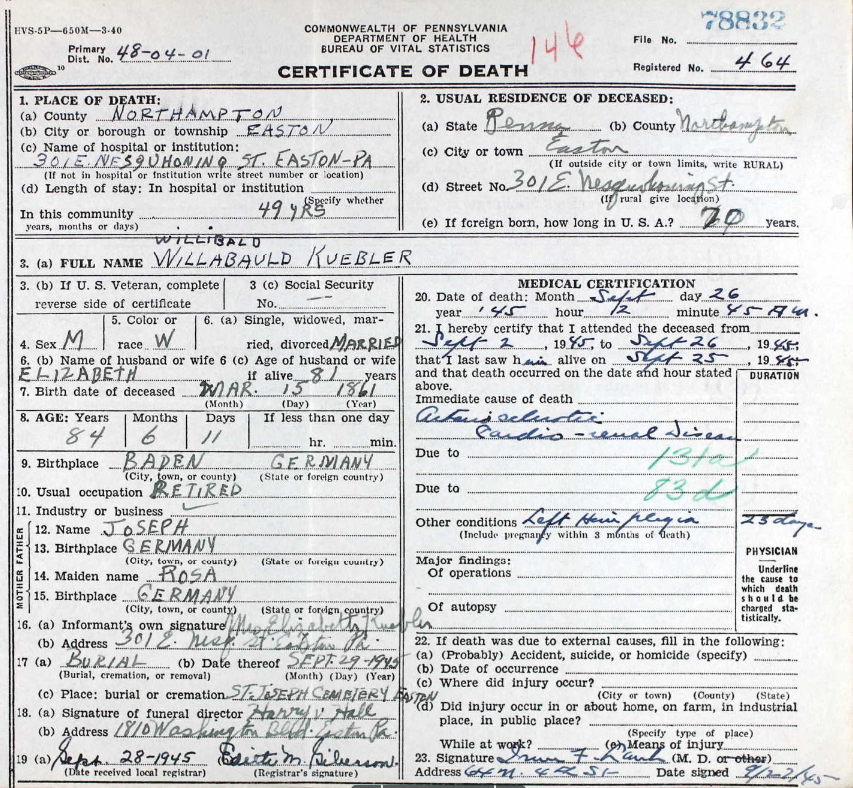 HVS-5P—650M—3-40
COMMONWEALTH OF PENNSYLVANIA
DEPARTMENT OF HEALTH
BUREAU OF VITAL STATISTICS
CERTIFICATE OF DEATH
146
78832
File No.
Primary Dist. No. 48-04-01
Registered No. 464
1. PLACE OF DEATH:
(a) County NORTHAMPTON
(b) City or borough or township EASTON
(c) Name of hospital or institution:
301 E. NESQUHONING ST. EASTON-PA
(If not in hospital or institution write street number or location)
(d) Length of stay: In hospital or institution
(Specify whether
In this community 49 YRS
years, months or days)
2. USUAL RESIDENCE OF DECEASED:
(a) State Penna (b) County Northampton
(c) City or town Easton
(If outside city or town limits, write RURAL)
(d) Street No. 301 E. Nesquehoning St.
(If rural give location)
(e) If foreign born, how long in U. S. A.? 70 years.
WILLIBALD
3. (a) FULL NAME WILLABAULD KUEBLER
3. (b) If U. S. Veteran, complete reverse side of certificate
3 (c) Social Security No. —
4. Sex M
5. Color or race W
6. (a) Single, widowed, married, divorced MARRIED
6. (b) Name of husband or wife ELIZABETH
6 (c) Age of husband or wife if alive 81 years
7. Birth date of deceased MAR. 15 1861
(Month) (Day) (Year)
8. AGE: Years Months Days If less than one day
84 6 11 hr. min.
9. Birthplace BADEN GERMANY
(City, town, or county) (State or foreign country)
10. Usual occupation RETIRED
11. Industry or business
MOTHER FATHER
12. Name JOSEPH
13. Birthplace GERMANY
(City, town, or county) (State or foreign country)
14. Maiden name ROSA
15. Birthplace GERMANY
(City, town, or county) (State or foreign country)
16. (a) Informant's own signature Mrs Elizabeth Kuebler
(b) Address 301 E. Nesq. St. Easton Pa.
17 (a) BURIAL (b) Date thereof SEPT. 29-1945
(Burial, cremation, or removal) (Month) (Day) (Year)
(c) Place: burial or cremation ST. JOSEPH CEMETERY EASTON
18. (a) Signature of funeral director Harry V Hall
(b) Address 1810 Washington Blvd. Easton Pa.
19 (a) Sept. 28-1945 Edith M. Siberson.
(Date received local registrar) (Registrar's signature)
MEDICAL CERTIFICATION
20. Date of death: Month Sept day 26
year '45 hour 12 minute 45 A m.
21. I hereby certify that I attended the deceased from
Sept 2, 1945 to Sept 26, 1945;
that I last saw him alive on Sept 25, 1945
and that death occurred on the date and hour stated above.
DURATION
Immediate cause of death
Arteriosclerotic
Cardio-renal Disease
Due to 131a
Due to 83d
Other conditions Left Hemiplegia 25 days
(Include pregnancy within 3 months of death)
PHYSICIAN
Underline the cause to which death should be charged statistically.
Major findings:
Of operations
Of autopsy
22. If death was due to external causes, fill in the following:
(a) (Probably) Accident, suicide, or homicide (specify)
(b) Date of occurrence
(c) Where did injury occur?
(City or town) (County) (State)
(d) Did injury occur in or about home, on farm, in industrial place, in public place?
(Specify type of place)
While at work? (e) Means of injury
23. Signature (M. D. or other)
Address 44 N. 4th St Date signed